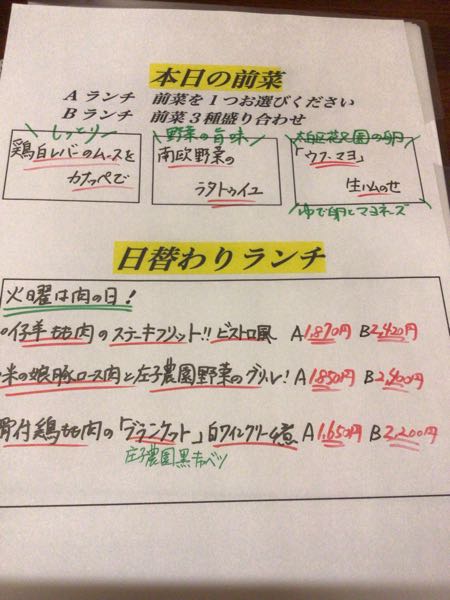 本日の前菜
Aランチ 前菜を1つお選びください
Bランチ 前菜3種盛り合わせ
\しっとりー/
鶏白レバーのムースを
カナッペで
\野菜の旨味/
南欧野菜の
ラタトゥイユ
花之園の卵/
「ウフ・マヨ」
生ハムのせ
\ゆで卵とマヨネーズ/
日替わりランチ
火曜は肉の日!
仔羊もも肉のステーキフリット!!ビストロ風 A1,870円 B2,420円
米の娘豚ロース肉と庄子農園野菜のグリル! A1,850円 B2,400円
骨付鶏もも肉の「ブランケット」白ワインクリーム煮 A1,650円 B2,200円
庄子農園黒キャベツ